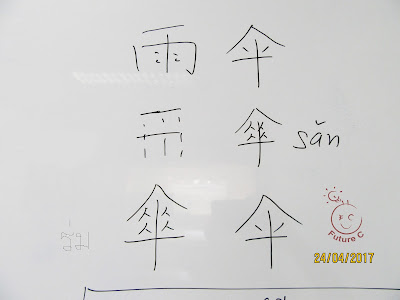 雨 伞
傘 sǎn
傘 伞
Future C
24/04/2017